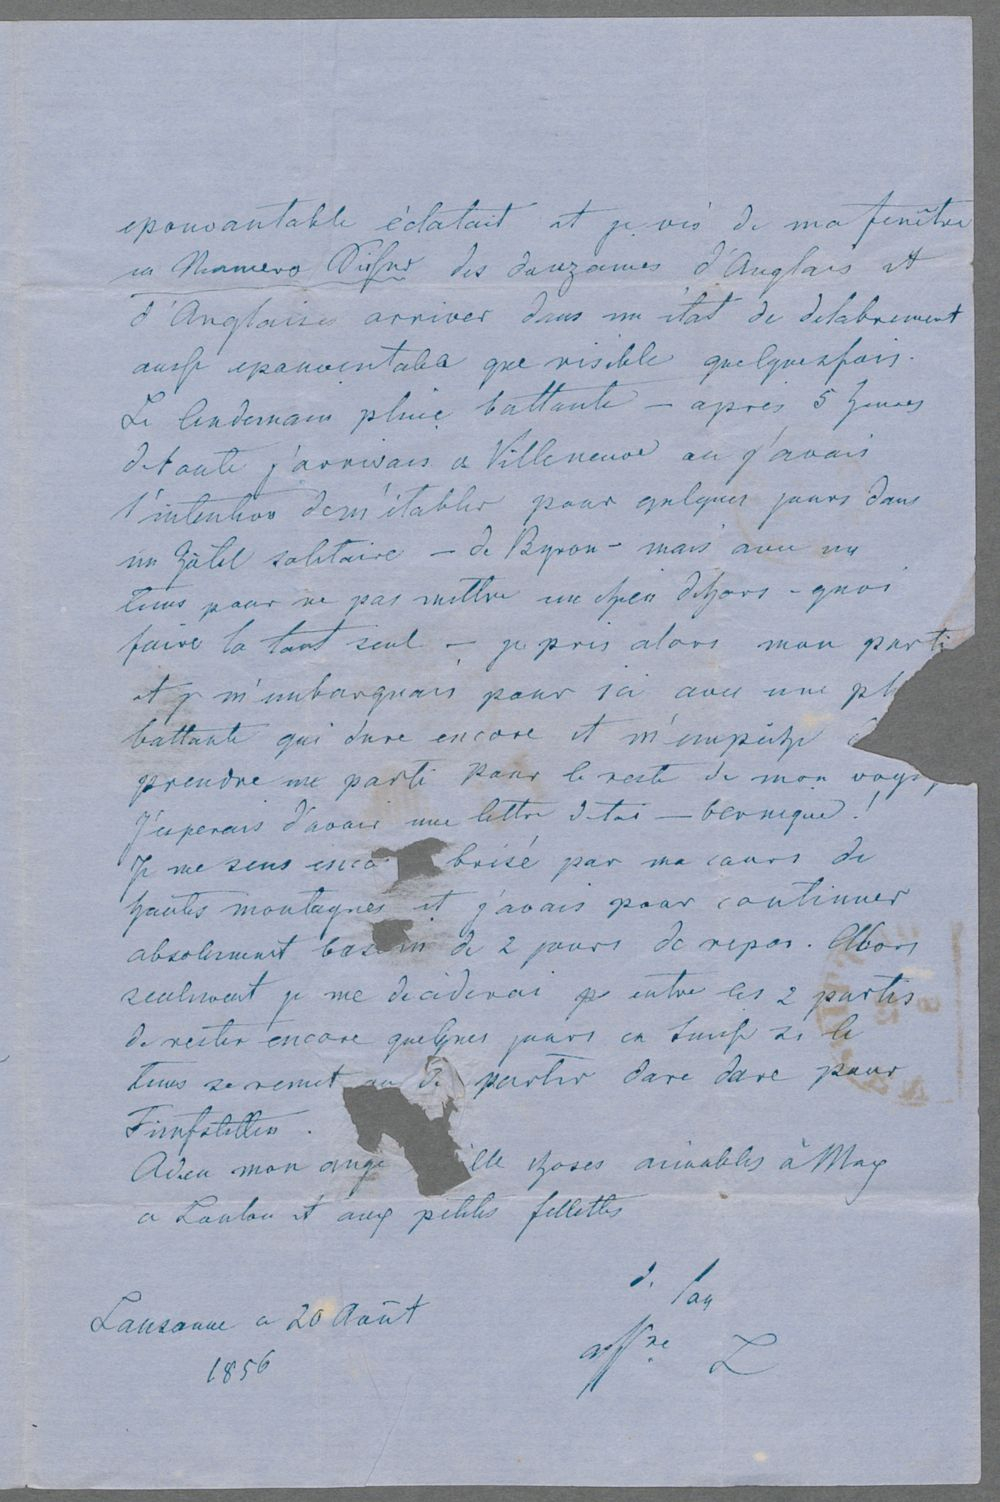 epouvantable éclatait et je vis de ma fenêtre
en Numero des douzaines d'Anglais et
d'Anglaises arriver dans un état de delabrement
aussi epouventable que risible quelquesfois.
Le lendemain pluie battante – après 5 heures
de route j'arrivais a Villeneuve ou j'avais
l'intention de m'établir pour quelques jours dans
un hôtel solitaire – de Byron – mais avec un
tems pour ne pas mettre un chien dehors – quoi
faire la tout seul – je pris alors mon parti
et je m'embarquais pour ici avec une pl
battante qui dure encore et m'empêche
prendre un parti pour le reste de mon voya
J'esperais d'avoir une lettre de toi – bernique!
Je me sens enco brisé par ma cours de
hautes montagnes et j'avais pour continuer
absolument besoin de 2 jours de repos. Alors
seulement je me deciderai entre les 2 partis
de rester encore quelques jours en Suisse si le
tems se remet ou de partir dare dare pour
Fünfstetten.
Adieu mon ange ille choses aimables à Max
a Loulou et aux petites fillettes
d. ton
affne L
Lausanne a 20 Août
1856